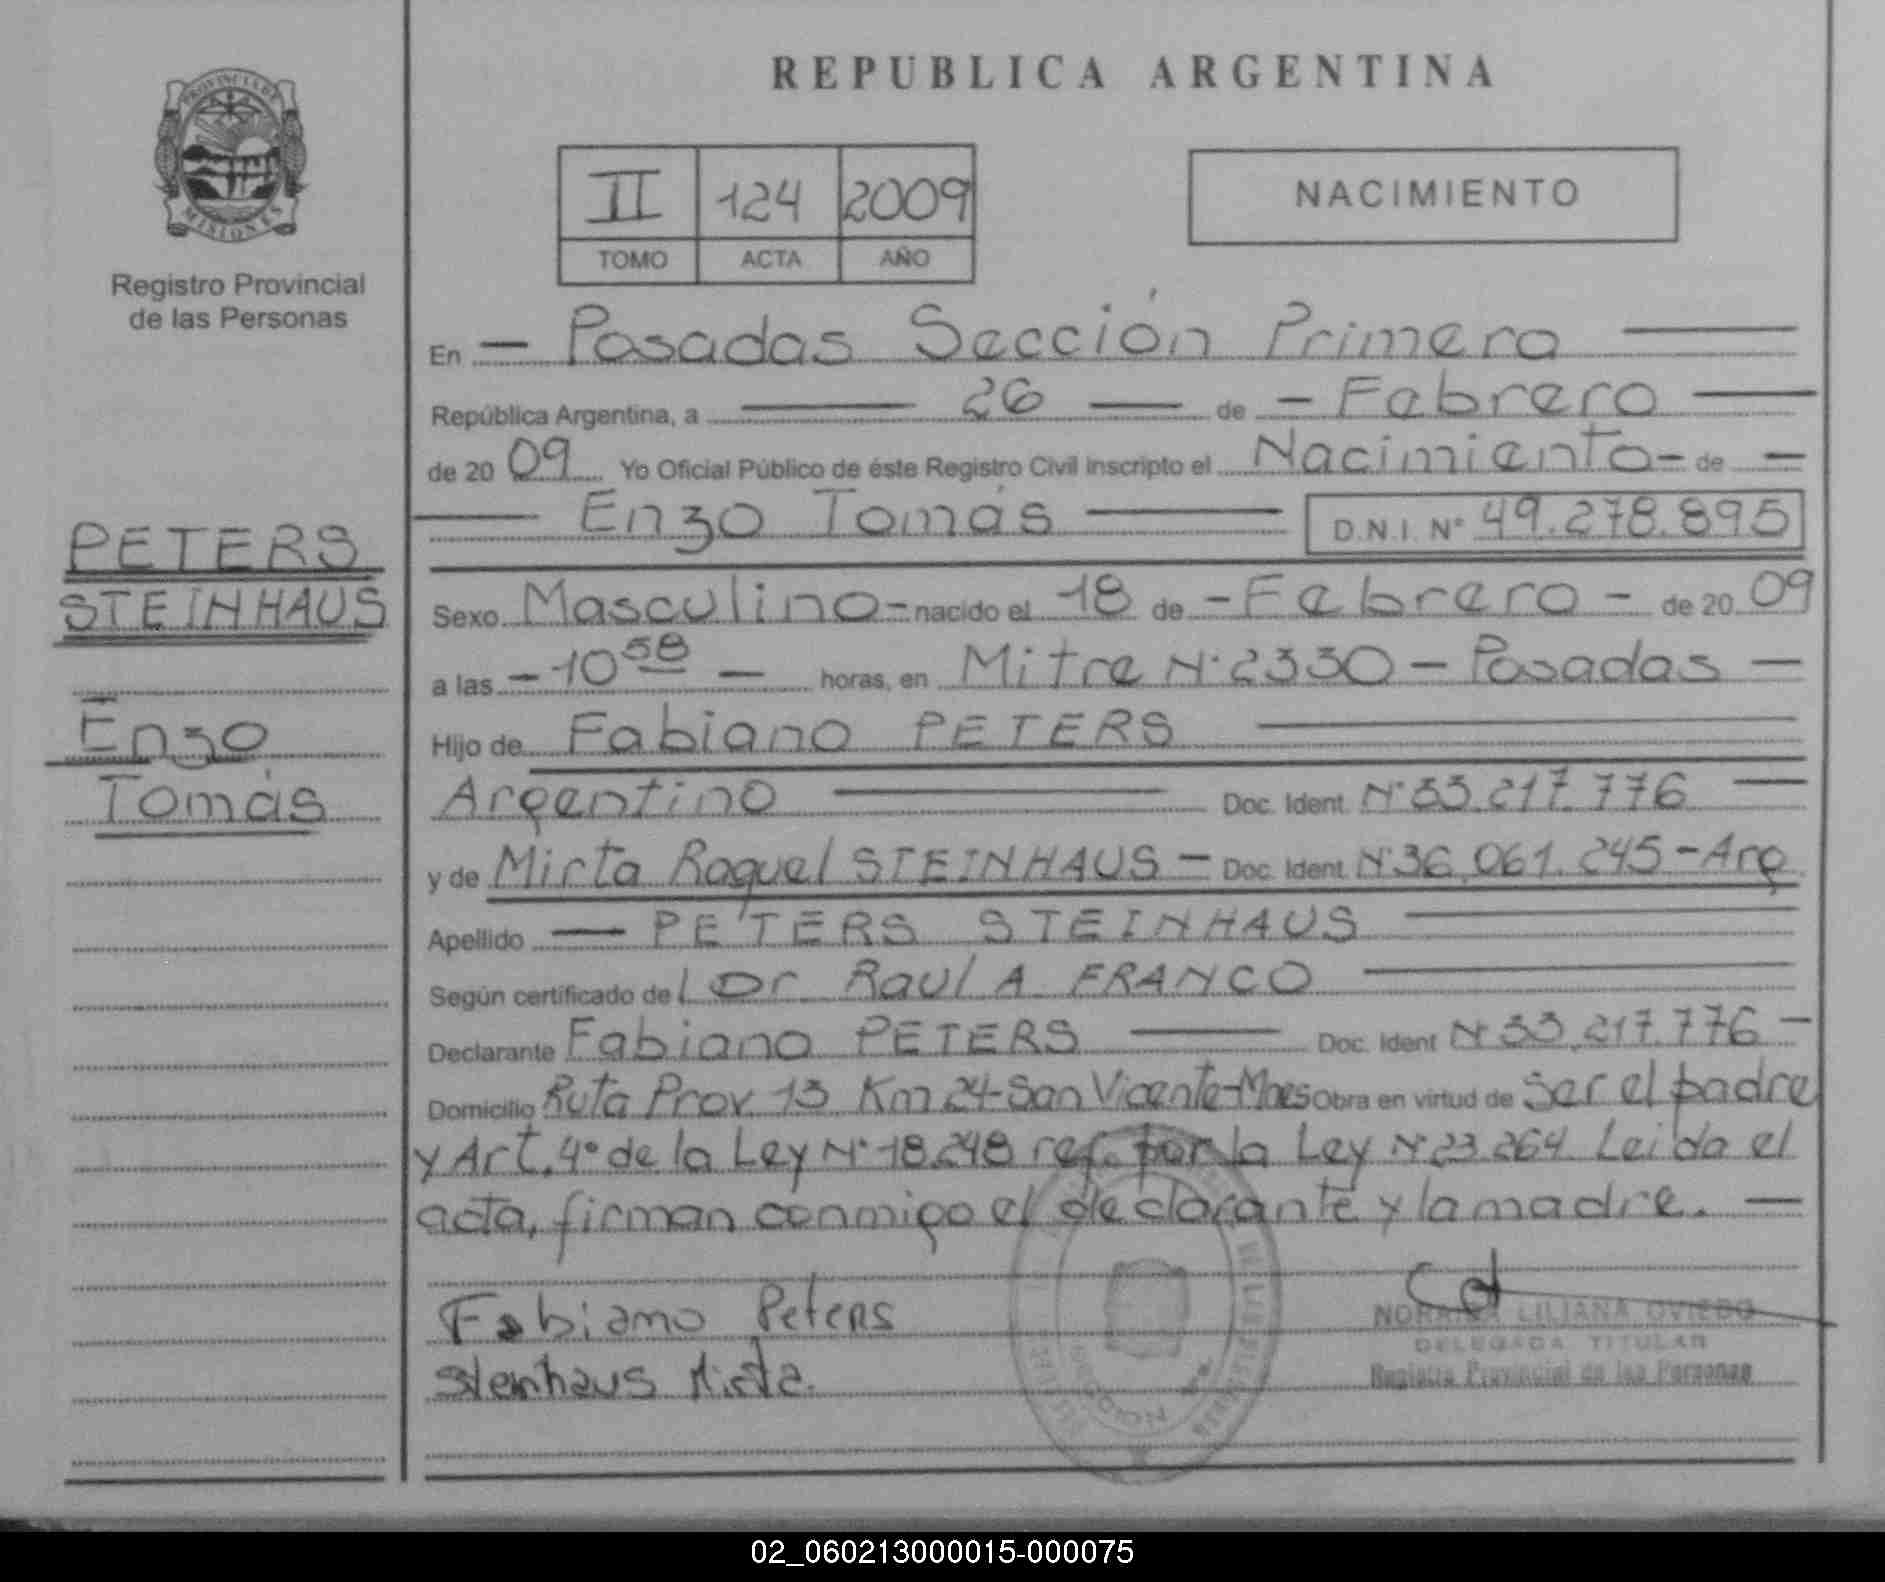 PROVINCIA DE
MISIONES
Registro Provincial
de las Personas
PETERS
STEINHAUS
Enzo
Tomás
REPUBLICA ARGENTINA
II 124 2009
TOMO ACTA AÑO
NACIMIENTO
En — Posadas Sección Primera —
República Argentina, a — 26 — de — Febrero —
de 20 09 Yo Oficial Público de éste Registro Civil inscripto el Nacimiento - de —
— Enzo Tomás — D.N.I. Nº 49.278.895
Sexo Masculino - nacido el 18 de - Febrero - de 20 09
a las - 10 58 — horas, en Mitre Nº 2330 - Posadas —
Hijo de Fabiano PETERS —
Argentino — Doc. Ident. Nº 33.217.776 —
y de Mirta Raquel STEINHAUS — Doc. Ident Nº 36.061.245 - Arg
Apellido — PETERS STEINHAUS —
Según certificado de l Dr Raul A FRANCO —
Declarante Fabiano PETERS — Doc. Ident Nº 33.217.776 —
Domicilio Ruta Prov 13 Km 24 - San Vicente - Mnes Obra en virtud de Ser el padre
y Art. 4º de la Ley Nº 18.248 ref. por la Ley Nº 23.264 Leida el
acta, firman conmigo el declarante y la madre. —
Fabiano Peters
Steinhaus Mirta.
LILIANA OVIEDO
DELEGADA TITULAR
Registro Provincial de las Personas
02_060213000015-000075